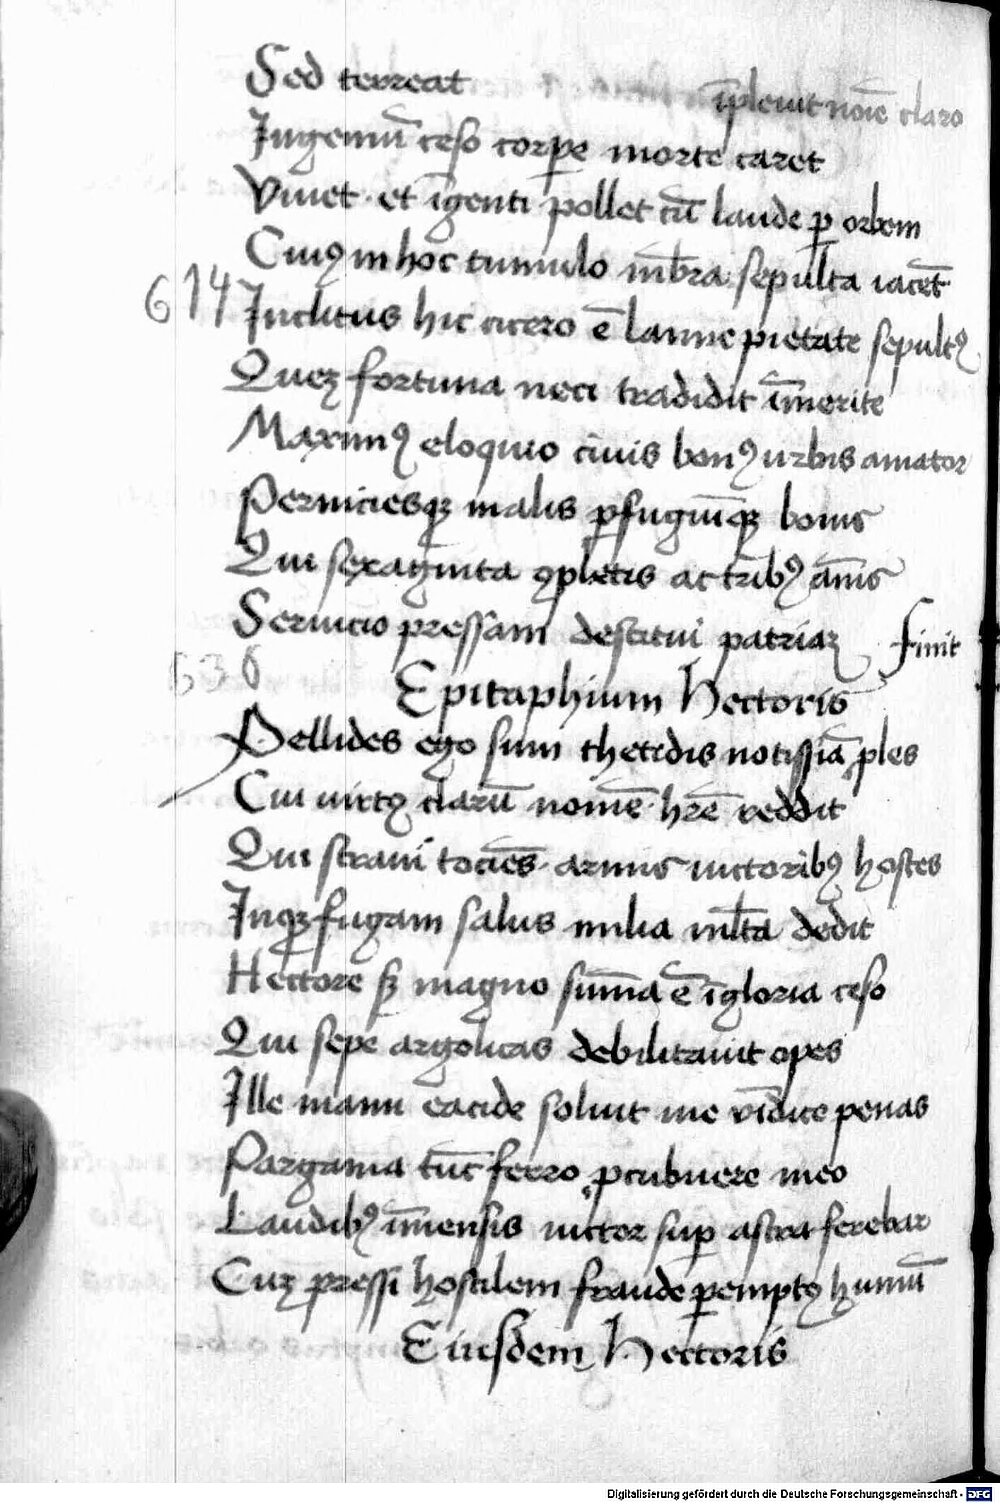 Sed terreat īpleuit noīe claro
Ingeniū ceso corpe morte caret
Viuet et īgenti pollet cū laude p orbem
Cuiꝰ in hoc tumulo mēbra sepulta iacēt
614 Inclitus hic cicero ē lanne pietate sepultꝰ
Quez fortuna neci tradidit īmerite
Maximꝰ eloquio ciuis bonꝰ urbis amator
Perniciesqz malis pfugiūqz bonis
Qui sexaginta ꝯpletis ac tribꝰ ānis
Seruicio pressam destitui patriaz finit
630
Epitaphium Hectoris
Pellides ego sum thetidis notissiā ples
Cui uirtꝰ clarū nomē hrē reddit
Qui straui tociēs armis uictoribꝰ hostes
Inqz fugam salus milia mlta dedit
Hectore sz magno sūma ē īgloria ceso
Qui sepe argolicas debilitauit opes
Ille manu eacide soluit me vīdice penas
Pargama tūc ferro pcubuere meo
Laudibꝰ īmensis uictor sup astra ferebar
Cuz pressi hostilem fraude pemptꝰ humū
Eiusdem Hectoris
Digitalisierung gefördert durch die Deutsche Forschungsgemeinschaft - DFG